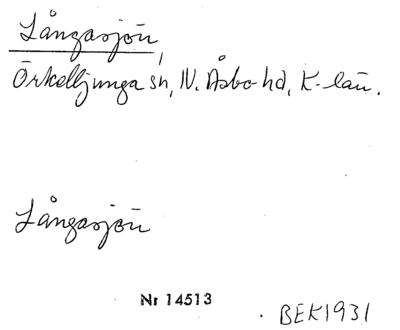 Långasjön,
Örkelljunga sn, N. Åsbo hd, K-län.
Långasjön
Nr 14513
BEK1931